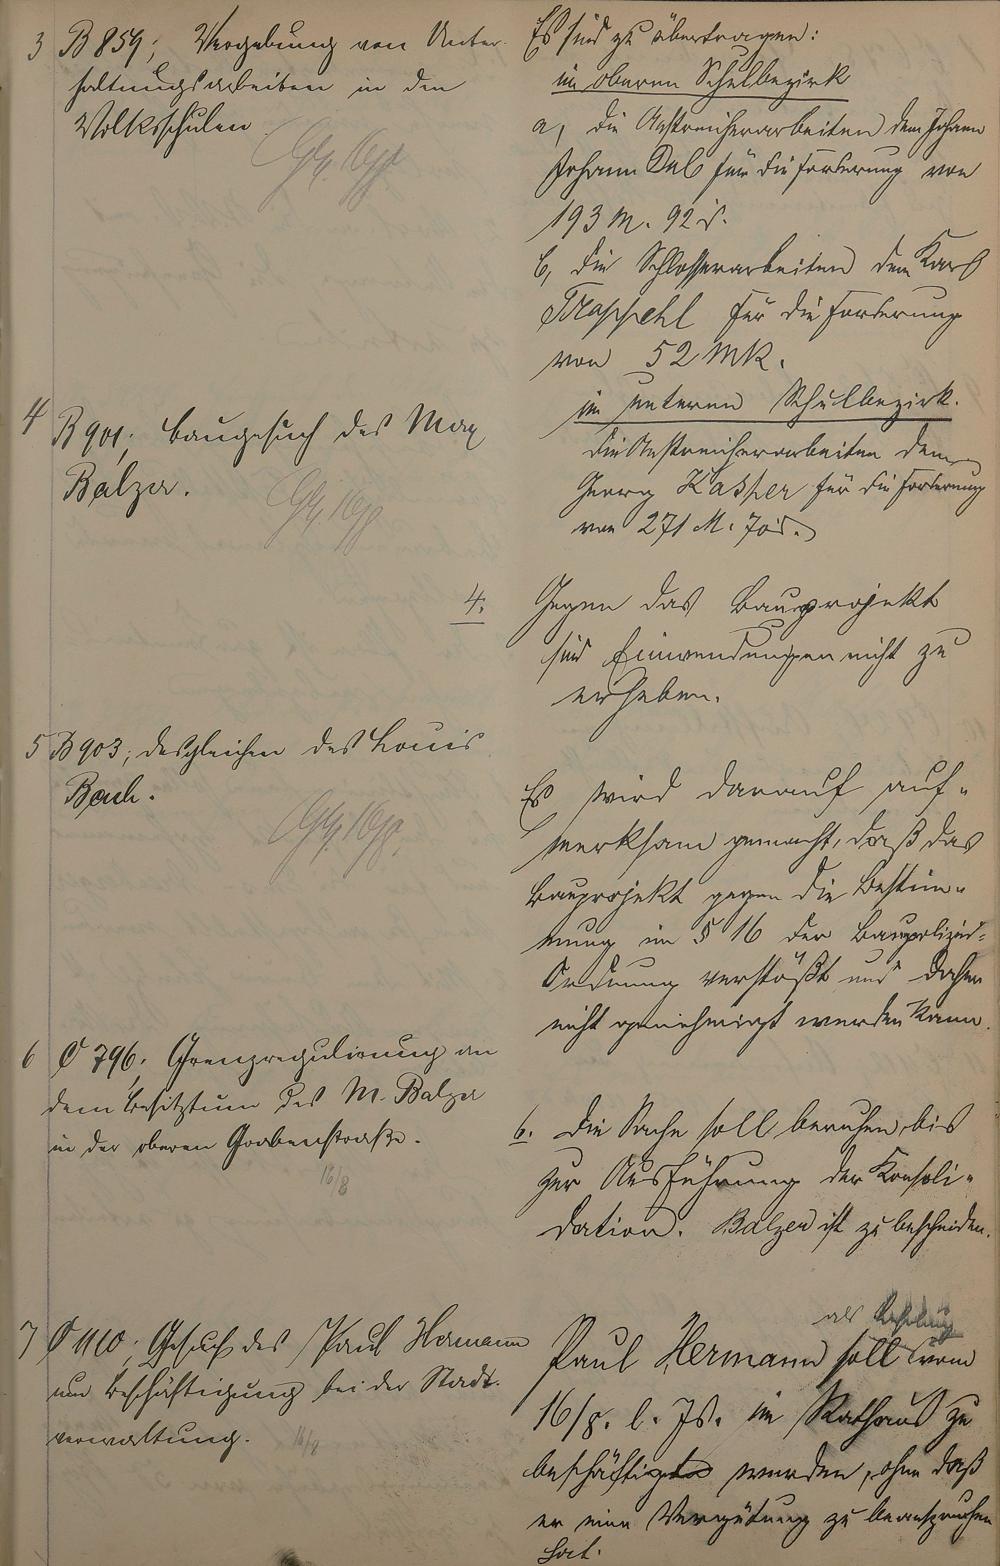 3 B 859; Vergebung von Unter-
haltungsarbeiten in den
Volksschulen
Es sind zu übertragen:
im oberen Schulbezirk
a, die Anstreicherarbeiten dem Johann
Johann Dal für die Forderung von
193 M. 92 d.
b, die Schlosserarbeiten dem Karl
Trapphehl für die Forderung
von 52 Mk.
im unteren Schulbezirk.
die Anstreicherarbeiten dem
Georg Kasper für die Forderung
von 271 M. 70 d.
4 B 901; Baugesuch des Max
Balzer.
4. Gegen das Bauprojekt
sind Einwendungen nicht zu
erheben.
5 B 903; desgleichen des Louis
Bach.
Es wird darauf auf-
merksam gemacht, daß das
Bauprojekt gegen die Bestim-
mung im § 16 der Baupolizei-
Ordnung verstößt und daher
nicht genehmigt werden kann.
6 C 796. Grenzregulierung an
dem Besitztum des M. Balzer
in der oberen Grabenstraße.
16/8
6. Die Sache soll beruhen, bis
zur Ausführung der Konsoli-
dation. Balzer ist zu bescheiden.
7 C 1110; Gesuch des Paul Hermann
um Beschäftigung bei der Stadt-
verwaltung.
16/8
als Lehrling
Paul Hermann soll vom
16/8. l. Js. im Rathaus zu
beschäftigt werden, ohne daß
er eine Vergütung zu beanspruchen
hat.